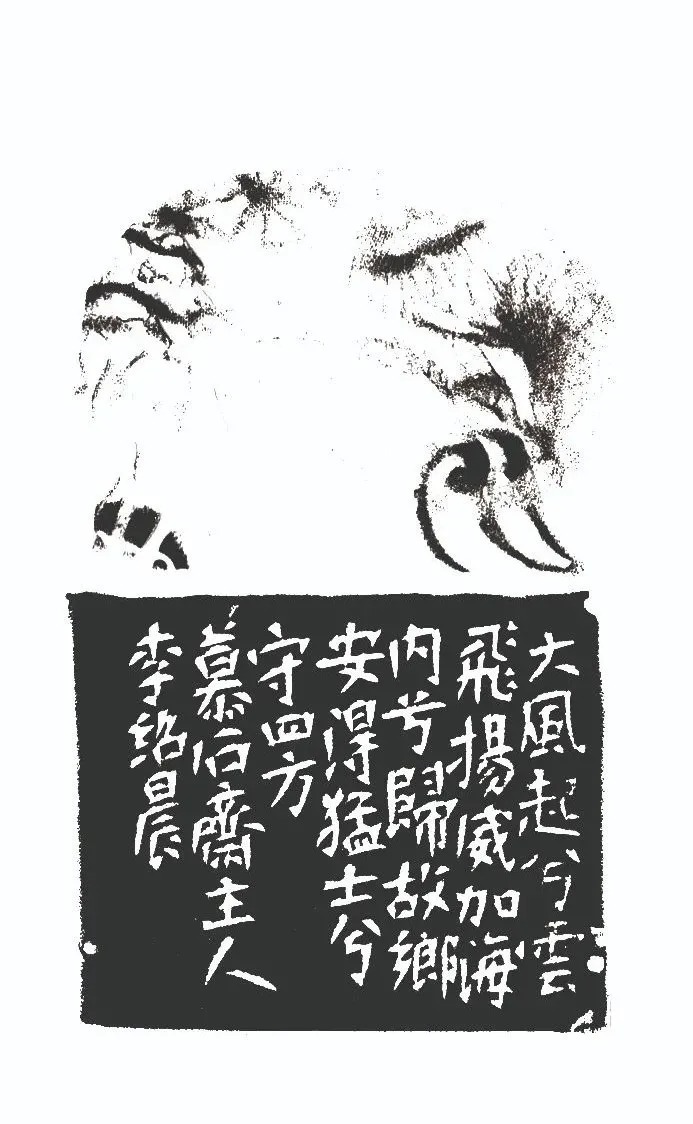 大風起兮雲
飛揚威加海
内兮歸故鄉
安得猛士兮
守四方
慕石齋主人
李紹晨